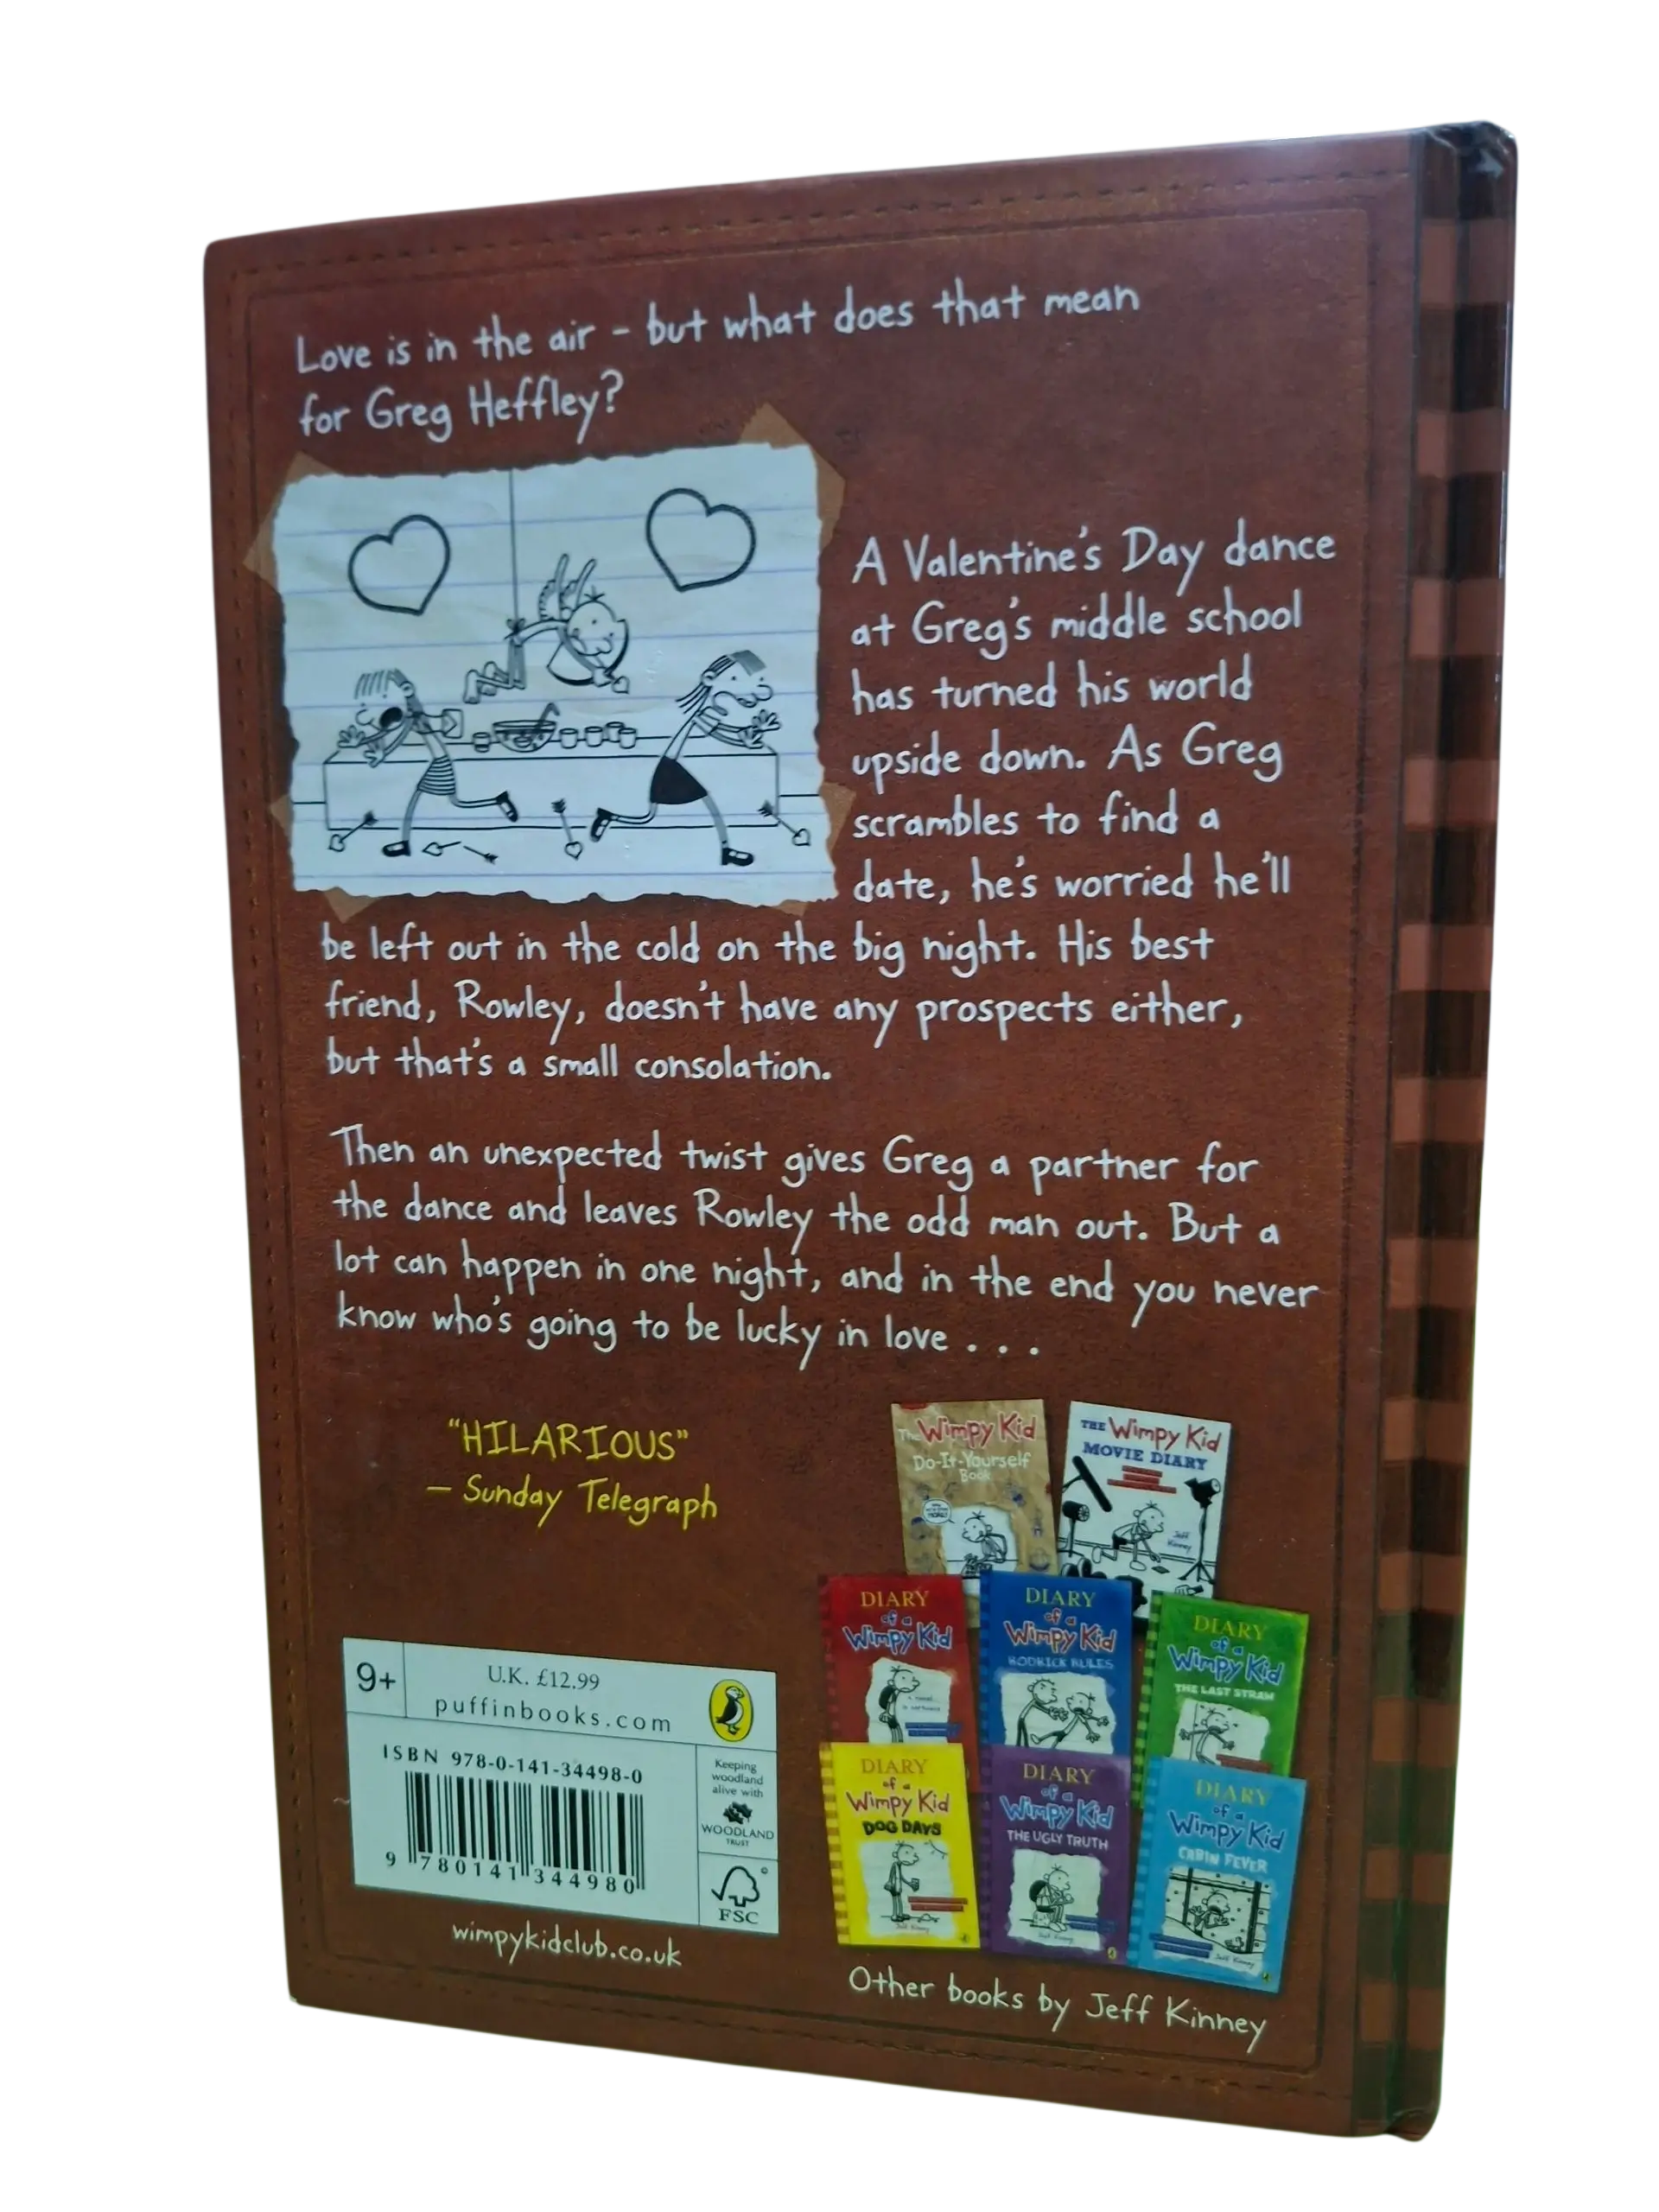 Love is in the air – but what does that mean
for Greg Heffley?
A Valentine's Day dance
at Greg's middle school
has turned his world
upside down. As Greg
scrambles to find a
date, he's worried he'll
be left out in the cold on the big night. His best
friend, Rowley, doesn't have any prospects either,
but that's a small consolation.
Then an unexpected twist gives Greg a partner for
the dance and leaves Rowley the odd man out. But a
lot can happen in one night, and in the end you never
know who's going to be lucky in love . . .
"HILARIOUS"
– Sunday Telegraph
The Wimpy Kid
Do-It-Yourself
Book
THE Wimpy Kid
MOVIE DIARY
Jeff
Kinney
DIARY
of a
Wimpy Kid
DIARY
of a
Wimpy Kid
RODRICK RULES
DIARY
of a
Wimpy Kid
THE LAST STRAW
DIARY
of a
Wimpy Kid
DOG DAYS
Jeff Kinney
DIARY
of a
Wimpy Kid
THE UGLY TRUTH
Jeff Kinney
DIARY
of a
Wimpy Kid
CABIN FEVER
Jeff Kinney
Other books by Jeff Kinney
9+
U.K. £12.99
puffinbooks.com
ISBN 978-0-141-34498-0
9 780141 344980
Keeping
woodland
alive with
WOODLAND
TRUST
FSC
wimpykidclub.co.uk